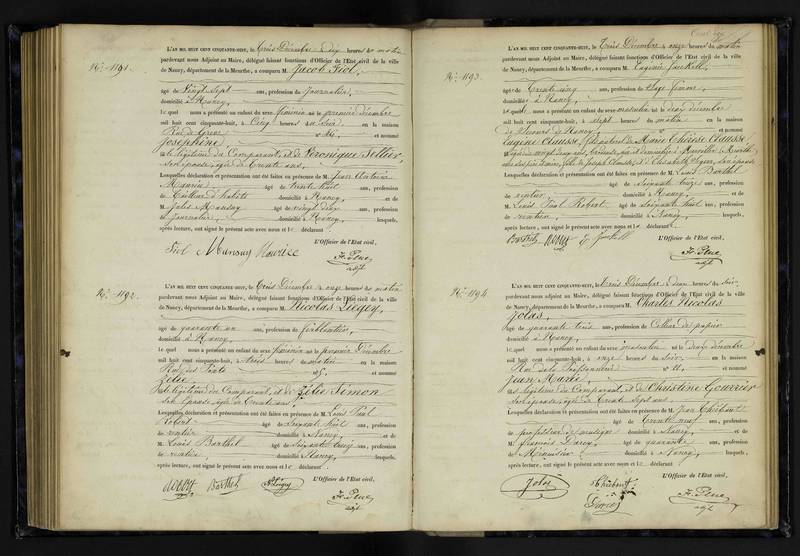 N.o 1191.
L'AN MIL HUIT CENT CINQUANTE-HUIT, le trois Décembre à dix heures du matin
pardevant nous Adjoint au Maire, délégué faisant fonctions d'Officier de l'Etat civil de la ville
de Nancy, département de la Meurthe, a comparu M. Jacob Fiol,
âgé de vingt sept ans, profession de journalier,
domicilié à Nancy,
lequel nous a présenté un enfant du sexe féminin né le premier Décembre
mil huit cent cinquante-huit, à cinq heures du soir en la maison
Rue de Grève n.o et nommé
Joséphine
légitime du Comparant, et de Véronique Sellier,
son épouse, âgée de trente ans,
Lesquelles déclaration et présentation ont été faites en présence de M. Jean Antoine
Maurice âgé de trente huit ans, profession
de tailleur d'habits domicilié à Nancy, et de
M. Jules Mansuy âgé de vingt deux ans, profession
de journalier, domicilié à Nancy, lesquels,
après lecture, ont signé le présent acte avec nous et le déclarant
L'Officier de l'Etat civil,
Fiol Mansuy Maurice
adjt
N.o 1192.
L'AN MIL HUIT CENT CINQUANTE-HUIT, le trois Décembre à onze heures du matin
pardevant nous Adjoint au Maire, délégué faisant fonctions d'Officier de l'Etat civil de la ville
de Nancy, département de la Meurthe, a comparu M. Nicolas Liégey,
âgé de quarante un ans, profession de ferblantier,
domicilié à Nancy,
lequel nous a présenté un enfant du sexe féminin né le premier Décembre
mil huit cent cinquante-huit, à trois heures du matin en la maison
Rue des Ponts n.o et nommé
Zélie
légitime du Comparant, et de Zélie Simon
son épouse, âgée de trente ans,
Lesquelles déclaration et présentation ont été faites en présence de M. Louis Paul
Robert âgé de soixante huit ans, profession
de rentier domicilié à Nancy, et de
M. Louis Barthel âgé de soixante treize ans, profession
de rentier, domicilié à Nancy, lesquels,
après lecture, ont signé le présent acte avec nous et le déclarant
L'Officier de l'Etat civil,
Barthel NLiégey
adjt
N.o 1193.
L'AN MIL HUIT CENT CINQUANTE-HUIT, le trois Décembre à onze heures du matin
pardevant nous Adjoint au Maire, délégué faisant fonctions d'Officier de l'Etat civil de la ville
de Nancy, département de la Meurthe, a comparu M. Eugénie
âgé de trente cinq ans, profession de Sage femme,
domicilié à Nancy,
lequel nous a présenté un enfant du sexe masculin né le deux décembre
mil huit cent cinquante-huit, à sept heures du matin en la maison
de secours de Nancy, et nommé
Eugène Clausse, fils naturel de Marie Thérèse Clausse
Lesquelles déclaration et présentation ont été faites en présence de M. Louis Barthel
âgé de soixante treize ans, profession
de rentier, domicilié à Nancy, et de
M. Louis Paul Robert âgé de soixante huit ans, profession
de rentier, domicilié à Nancy, lesquels,
après lecture, ont signé le présent acte avec nous et le déclarant
L'Officier de l'Etat civil,
adjt
N.o 1194
L'AN MIL HUIT CENT CINQUANTE-HUIT, le trois Décembre à deux heures du soir,
pardevant nous Adjoint au Maire, délégué faisant fonctions d'Officier de l'Etat civil de la ville
de Nancy, département de la Meurthe, a comparu M. Charles Nicolas
Jolas,
âgé de quarante trois ans, profession de Colleur de papier
domicilié à Nancy,
lequel nous a présenté un enfant du sexe masculin né le deux décembre
mil huit cent cinquante-huit, à onze heures du soir en la maison
Rue de la Poissonnerie n.o et nommé
Jean Marie
légitime du Comparant, et de Christine Gourrier
son épouse, âgée de trente sept ans,
Lesquelles déclaration et présentation ont été faites en présence de M. Jean Thiébaut
âgé de trente neuf ans, profession
de professeur de musique domicilié à Nancy, et de
M. François Darcy âgé de quarante ans, profession
de Menuisier domicilié à Nancy lesquels,
après lecture, ont signé le présent acte avec nous et le déclarant
L'Officier de l'Etat civil,
Jolas Thiébaut
adjt